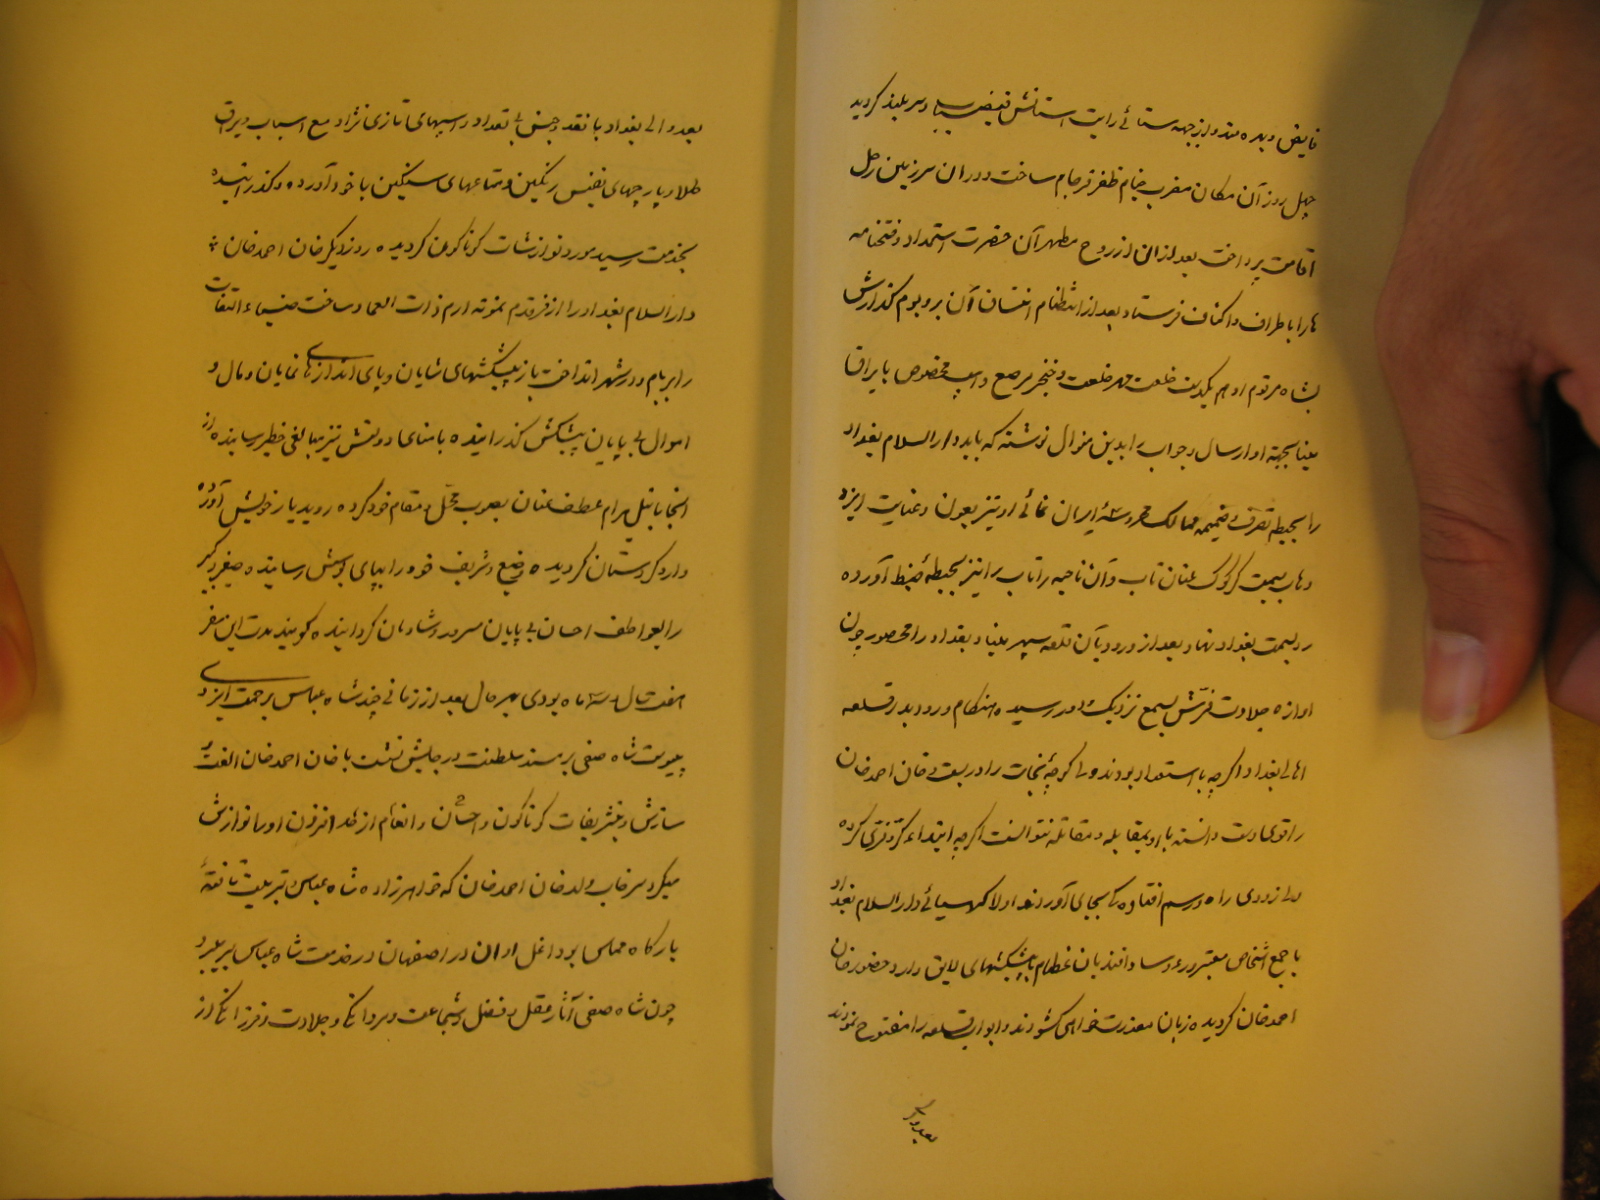 فایض و بهره مند و از جبهه ستائے رایت استانش فیض سر بلند کردید
چهل روز آن مکان مضرب خیام ظفر فرجام ساخت و در ان سرزمین رحل
اقامت پرداخت بعد از ان از روح مطهر آن حضرت استمداد و فتحنامه
ها را باطراف و اکناف فرستاد بعد از انتظام انتسان آن بر و بوم کذارش
بشاه مرقوم او هم یکدست خلعت مهر طلعت و خنجر مرصع و اسب مخصوص با یراق
مینا بجهة او ارسال و جواب را بدین منوال نوشته که باید دار السلام بغداد
را بحیطه تصرف و ضمیمه ممالک محروسهٔ ایران نمائے او نیز بعون و عنایت ایزد
وهاب بسمت کرکوک عنان تاب و آن ناحیه را نیز بحیطهٔ ضبط آورده
رو بسمت بغداد نهاد بعد از ورود بآن قلعه سپهر بنیاد بغداد را محصور چون
اوازه جلادت فرّش بسمع نزدیک و دور رسیده هنکام ورود بدر قلعه
اهالی بغداد اکرچه با استعداد بودند ولی کوچهٔ نجات را در بیعت خان احمد خان
را قوی دست دانسته با او بمقابله و مقاتله نتوانست اکرچه ابتداء کرّ و فرّی کرده
ولی از زودی راه و رسم افتاده کے بجای آوردند اولا کهیائے دار السلام بغداد
با جمع اشخاص معتبر و رءوسا و افندیان عظام با پیشکشهای لایق وارد حضور خان
احمد خان کردیده زبان معذرت خواهی کشودند و ابواب قلعه را مفتوح نمودند
بعد والی
بعد والی بغداد با نقد و جنس بی تعداد و اسبهای تازی نژاد مع اسباب و یراق
طلا و پارچهای نفیس رنکین و متاعهای سنکین با خود آورده و کذرانیده
بخدمت رسید مورد نوازشات کوناکون کردیده روز دیکر خان احمد خان
دار السلام بغداد را از فر قدم نمونه ارم ذات العماد ساخت ضیاء التفات
را بر بام و در شهر انداخت باز پیشکشهای شایان و پای اندازهای نمایان و مال و
اموال بی پایان پیشکش کذرانیده بامنای دولتش نیز مبالغی خطیر رسانیده از
انجا با نیل مرام عطف عنان بصوب محل و مقام خود کرده رو بدیار خویش آورده
وارد کردستان کردیده وضیع و شریف خود را بپای بوسش رسانیده صغیر و کبیر
را بعواطف احسان بی پایان مسرور و شادمان کردانیده کویند مدت این سفر
هفت سال و سه ماه بودی بهر حال بعد از زمانی چند شاه عباس برحمت ایزدی
پیوست شاه صفی بر مسند سلطنت در جایش نشست با خان احمد خان الفت و
سازش و بتشریفات کوناکون و احسان و انعام از حد افزون او را نوازش
میکرد سرخاب ولد خان احمد خان که خواهرزاده شاه عباس و تربیت یافتهٔ
بارکاه عباسی بود اغلب اوان در اصفهان در خدمت شاه عباس بسر میبرد
چون شاه صفی آثار عقل و فضل و شجاعت و مردانکے و جلادت و فرزانکے از